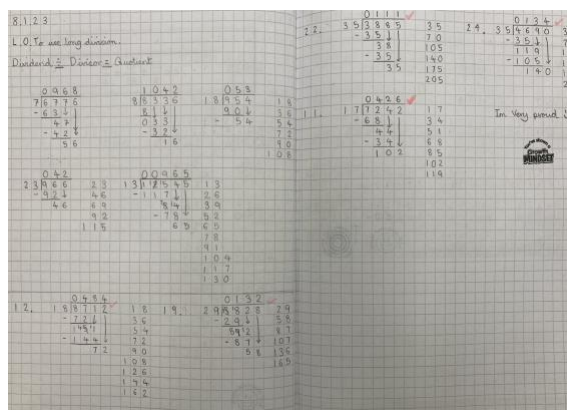 8.1.23
L.O. To use long division.
Dividend ÷ Divisor = Quotient
0968
7 6776
- 63
47
- 42
56
1042
8 8336
8
033
- 32
16
053
18 954
90
- 54
18
36
54
72
90
108
042
23 966
- 92
46
23
46
69
92
115
00965
13 12545
- 117
84
- 78
65
13
26
39
52
65
78
91
104
117
130
12.
0484
18 8712
- 72
151
- 144
72
18
36
54
72
90
108
126
144
162
19.
0132
29 3828
- 29
92
- 87
58
29
58
87
107
136
165
22.
0111
35 3885
- 35
38
- 35
35
35
70
105
140
175
205
11.
0426
17 7242
- 68
44
- 34
102
17
34
51
68
85
102
119
24.
0134
35 4690
- 35
119
- 105
140
Im very proud
Growth
MINDSET